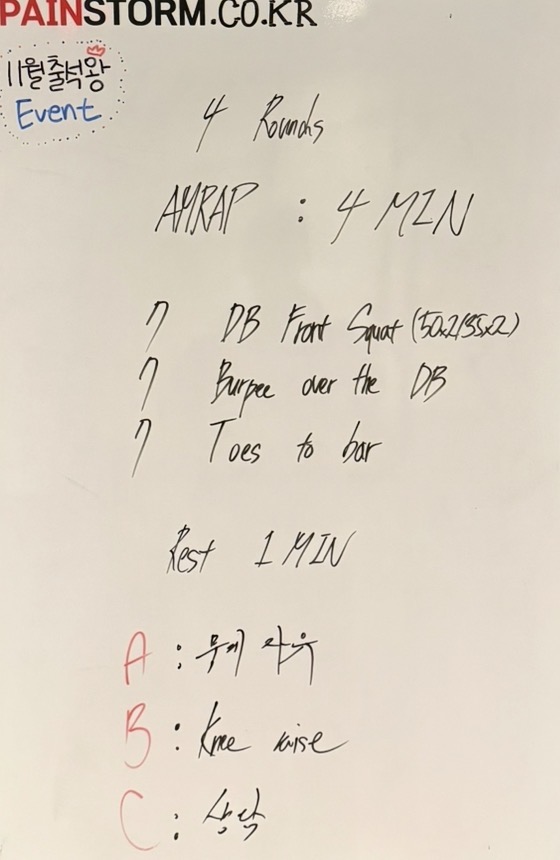 PAINSTORM.CO.KR
11월 출석왕
Event
4 Rounds
AMRAP : 4 MIN
7 DB Front Squat (50x2/35x2)
7 Burpee over the DB
7 Toes to bar
Rest 1 MIN
A : 무게 자유
B : Knee raise
C : 상담